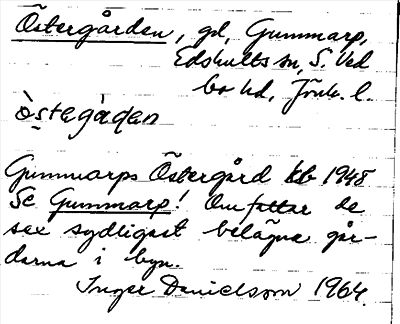 Östergården, gd, Gummarp,
Edshults sn, S. Ved
bo hd, Jönk. l.
östegåḍen
Gummarps Östergård kb 1948
Se Gummarp! Omfattar de
sex sydligast belägna går-
darna i byn.
Inger Danielsson 1964.